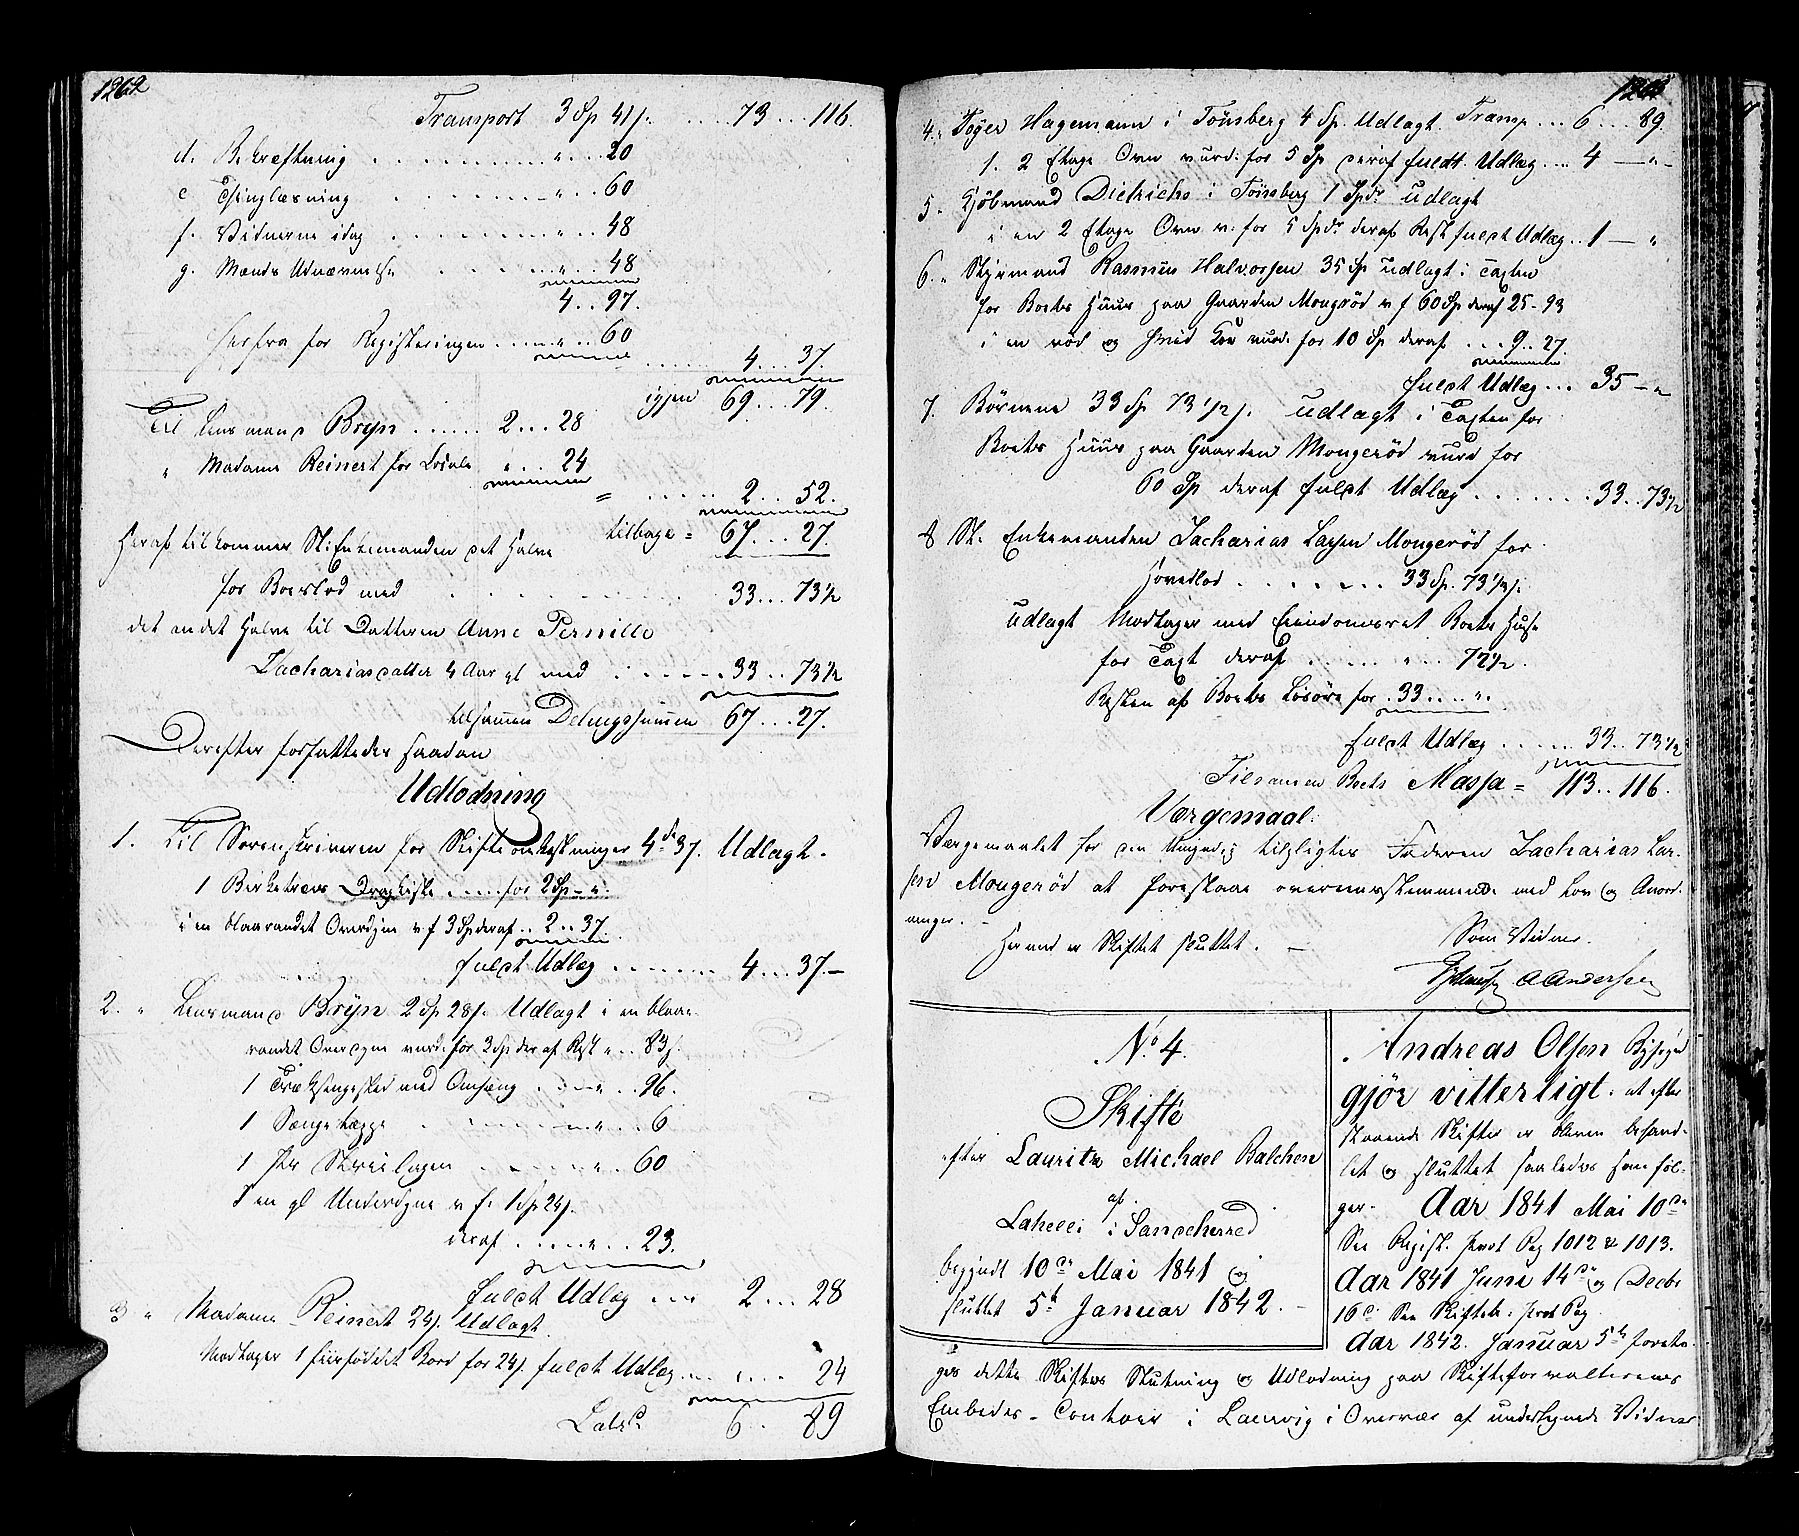 1262
Transport 3 Sp 41 s. .... 73 ... 116.
d. Bekræftning .......... " ... 20
e Thinglæsning ......... " .. 60
f. Vidnerne idag ........ " .. 48
g. Mænds Udnævnelse ...... " .. 48
4 .. 97.
herfra for Registeringen .... " .. 60
...... 4 ... 37.
igjen 69 ... 79.
Til Lensmand Bryn ...... 2 ... 28
" Madame Reinert for Locale " ... 24
= ...... 2 ... 52.
tilbage = 67 ... 27.
Heraf tilkommer St: Enkemanden det Halve
for Boeslod med .......... 33 ... 73 1/2
det andet Halve til Datteren Anne Pernille
Zachariasdatter 4 Aar gl med ...... 33 .. 73 1/2
tilsammen Delingssummen 67 ... 27.
Derefter forfattedes saadan
Udlodning
1. Til Sorenskriveren for Skifteomkostninger 4 Sp 37. Udlagt.
1 Birketræes Dragkiste .... for 2 Sp - ".
i en blaarandet Overdyne v f 3 Sp deraf .. 2 .. 37.
fuldt Udlæg ....... 4 ... 37 -
2. " Lensmand Bryn 2 Sp 28 s. Udlagt i en blaa-
randet Overdyne vurd. for 3 Sp deraf Rest " .. 83 s.
1 Træksengested med Omhæng ..... " .. 96.
1 Sængetæppe ....... " .. 6
1 Par Strielagen ...... " .. 60
i en gl Underdyne v f. 1 Sp 24 s.
deraf ..... " .. 23.
fuldt Udlæg .... 2 ... 28
3 " Madame Reinert 24 s. Udlagt
Modtager 1 furføldet Bord for 24 s. fuldt Udlæg ...... 24
Lats. 6 .. 89
1263
4. " Föyer Hagemann i Tönsberg 4 Sp. Udlagt. Transp ... 6 ... 89.
1. 2 Etage Ovn vurd: for 5 Sp deraf fuldt Udlæg .... 4 - " -
5. Kjöbmand Dietrichs i Tönsberg 1 Spdr udlagt
i en 2 Etage Ovn v. for 5 Spdr deraf Rest fuldt Udlæg .. 1 - "
6. " Styrmand Rasmus Halvorsen 35 Sp udlagt i Taxten
for Boets Huus paa Gaarden Mougeröd v f 60 Sp deraf 25 - 93
i en röd og hvid Koe vurd. for 10 Sp deraf ... 9 .. 27
fuldt Udlæg ... 35 - "
7. Börnene 33 Sp 73 1/2 s. udlagt i Taxten for
Boets Huus paa Gaarden Mougeröd vurd for
60 Sp deraf fuldt Udlæg ....... 33 .. 73 1/2
8 St. Enkemanden Zacharias Larsen Mougeröd for
Hovedlod ....... 33 Sp. 73 1/2 s.
udlagt Modtager med Eiendomsret Boets Huse
for Taxt deraf ..... " .. 72 1/2.
Resten af Boets Lösöre for . 33 ... ".
fuldt Udlæg ..... 33 .. 73 1/2
Tilsammen Boets Massa = 113 .. 116.
Værgemaal.
Værgemaalet for den Umyndig tilpligtes Faderen Zacharias Lar-
sen Mougeröd at foreslaae overeensstemmende med Lov og Anord-
ninger. -
Hermed er Skiftet sluttet. -
Som Vidner.
AAndersen
No 4.
Skifte
efter Lauritz Michael Balchen
af
Lahelle i Sandeherred
begyndt 10de Mai 1841 og
sluttet 5te Januar 1842. -
Andreas Olsen Byfoged
gjör vitterligt: at efter-
staaende Skifter er bleven behand-
let og sluttet saaledes som föl-
ger. Aar 1841 Mai 10de
See Regist. Prot Pag 1012 & 1013.
Aar 1841 Juni 14de og Decbr
16de See Skifteb. Prot Pag.
Aar 1842. Januar 5te foreto-
ges dette Skiftes Slutning og Udlodning paa Skifteforvalterens
Embeds-Contoir i Laurvig i Overvær af undertegnede Vidner